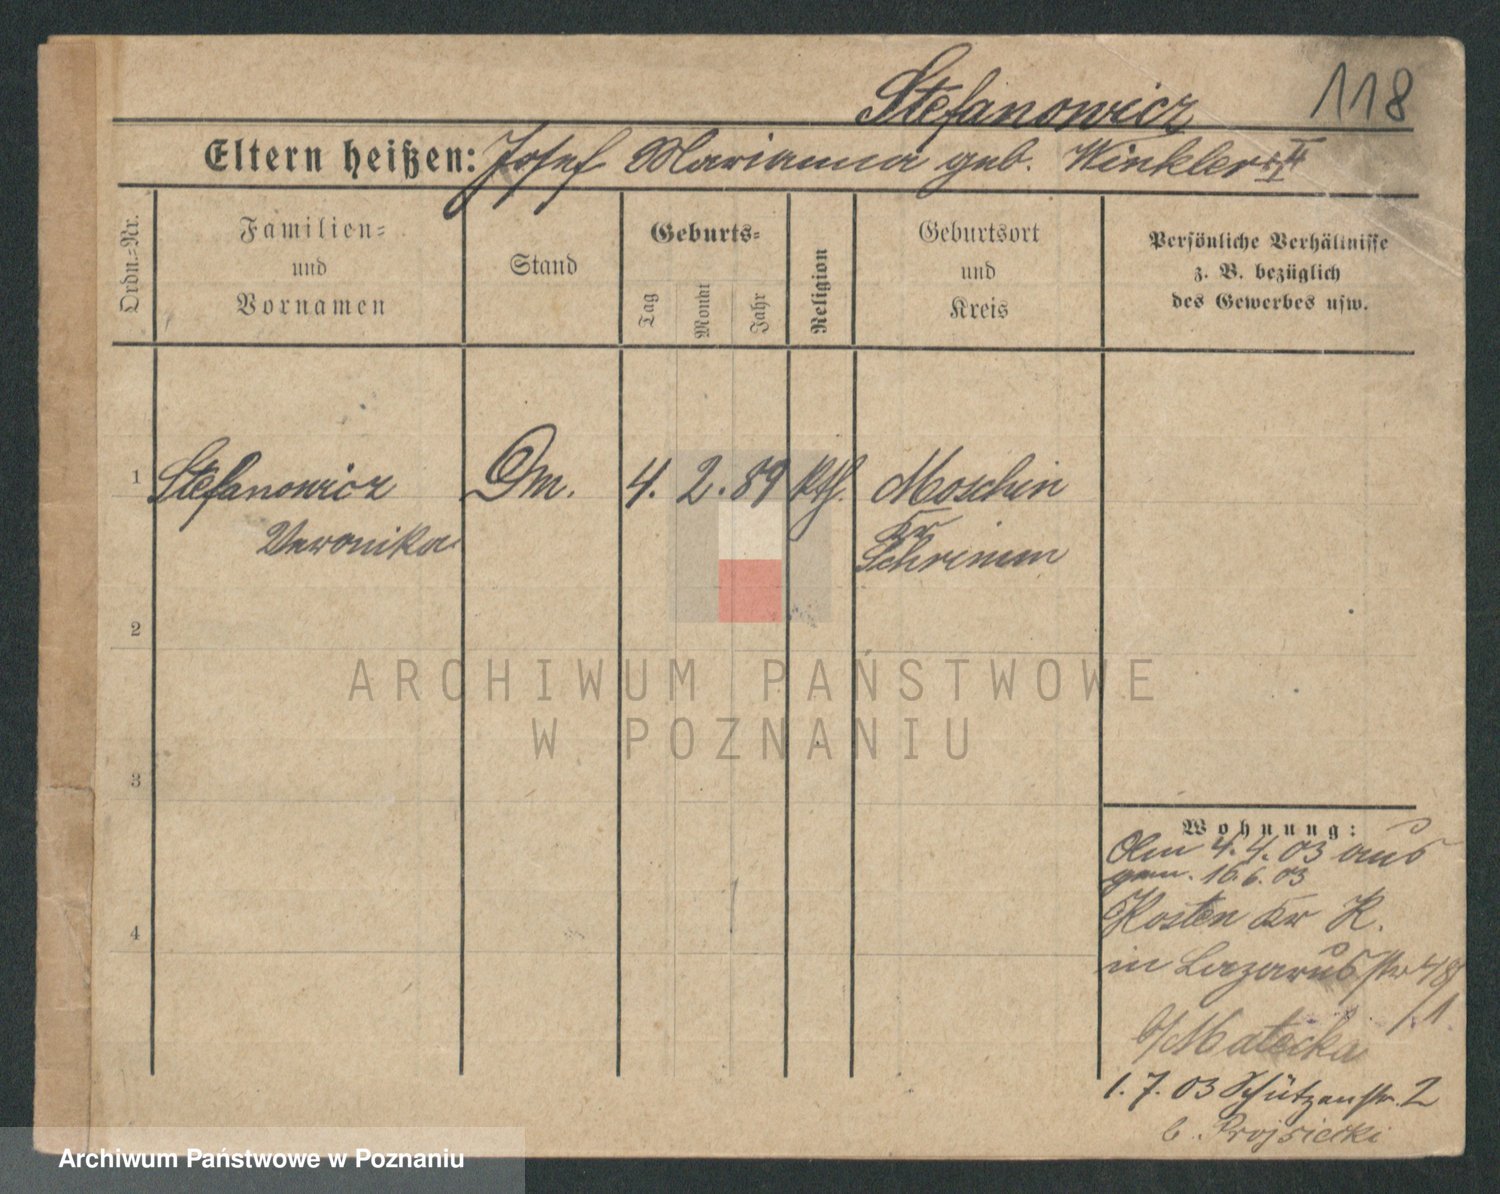 Stefanowicz 118
Eltern heißen: Josef Marianna geb. Winkler
Ordn.-Nr.
Familien-
und
Vornamen
Stand
Geburts-
Tag
Monat
Jahr
Religion
Geburtsort
und
Kreis
Persönliche Verhältnisse
z. B. bezüglich
des Gewerbes usw.
1 Stefanowicz Dm. 4. 2. 89 kth. Moschin
Veronika Kr
Schrimm
2
3
4
ARCHIWUM PAŃSTWOWE
W POZNANIU
Wohnung:
4. 4. 03 aus
gem. 16. 6. 03
Kosten Kr K.
in Lazarusstr 48
/1
b/Matecka
1. 7. 03 Schützenstr. 2
b.
Archiwum Państwowe w Poznaniu